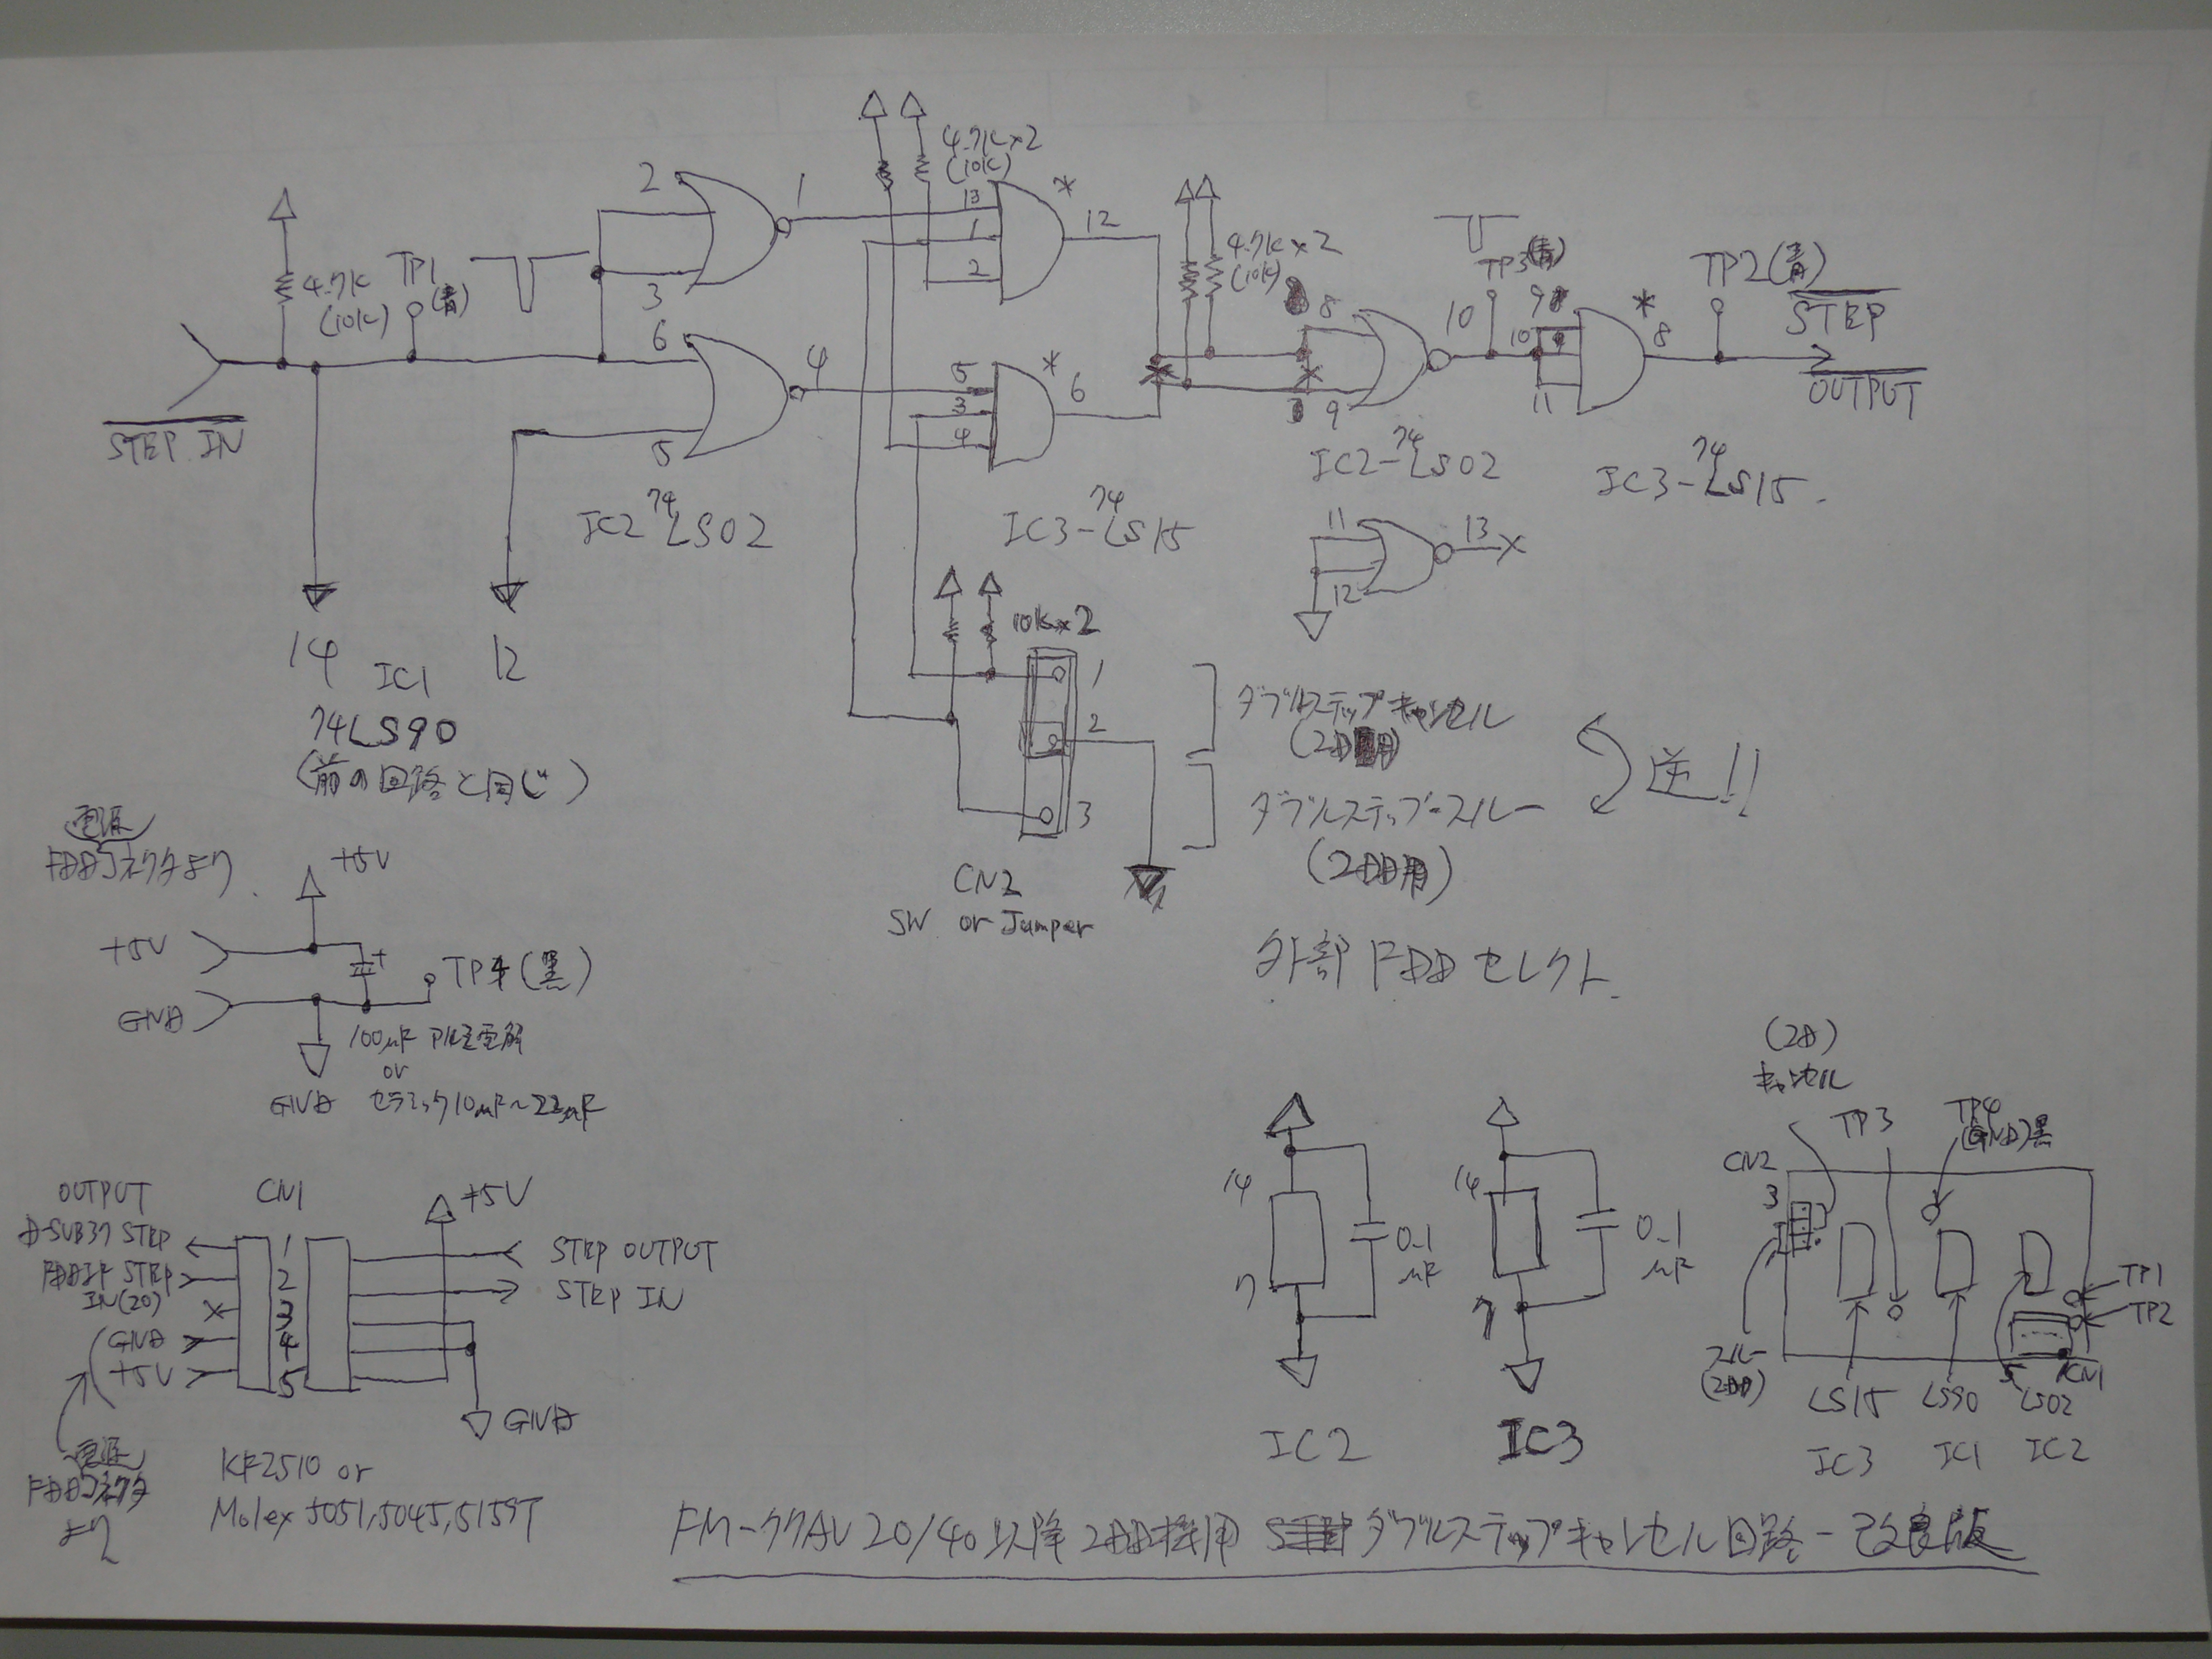 4.7K×2
(10K)
2
3
1
13
1
2
*
12
4.7K
(10K)
TP1
(青)
4.7K×2
(10K)
8
9
10
TP3(青)
9
10
11
*
8
TP2(青)
STEP
OUTPUT
STEP IN
6
5
4
5
3
4
*
6
IC2 74LS02
IC3-74LS15
IC2-74LS02
IC3-74LS15.
11
12
13
14
IC1
12
74LS90
(前の回路と同じ)
10K×2
1
2
3
ダブルステップキャンセル
(2D用)
ダブルステップ-スルー
(2DD用)
逆!!
CN2
SW or Jumper
外部FDDセレクト.
電源
FDDコネクタより.
+5V
+5V
GND
+
TP4(黒)
100μF アルミ電解
or
セラミック10μF~22μF
GND
OUTPUT
CN1
+5V
D-SUB37 STEP
1
STEP OUTPUT
FDDIF STEP
IN(20)
2
STEP IN
3
GND
4
+5V
5
GND
電源
FDDコネクタ
より
KF2510 or
Molex 5051,5045,5159T
14
7
0.1
μF
IC2
14
7
0.1
μF
IC3
(2D)
キャンセル
TP3
TP4
(GND)黒
CN2
3
TP1
TP2
スルー
(2DD)
5
CN1
LS15
LS90
LS02
IC3
IC1
IC2
FM-77AV20/40以降2DD機用 ダブルステップキャンセル回路-改良版